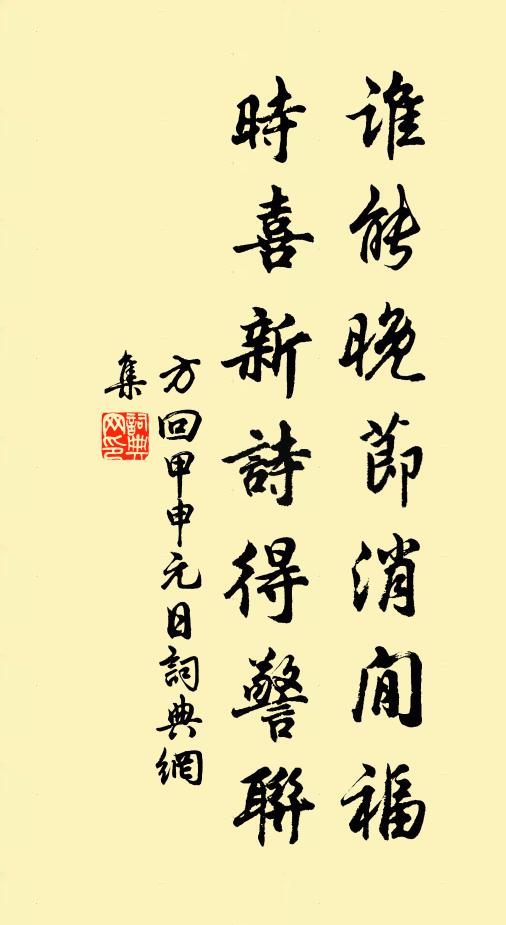 誰能晚節消閒福
時喜新詩得警聯
方回甲申元日詞典網
集
詞典
网印